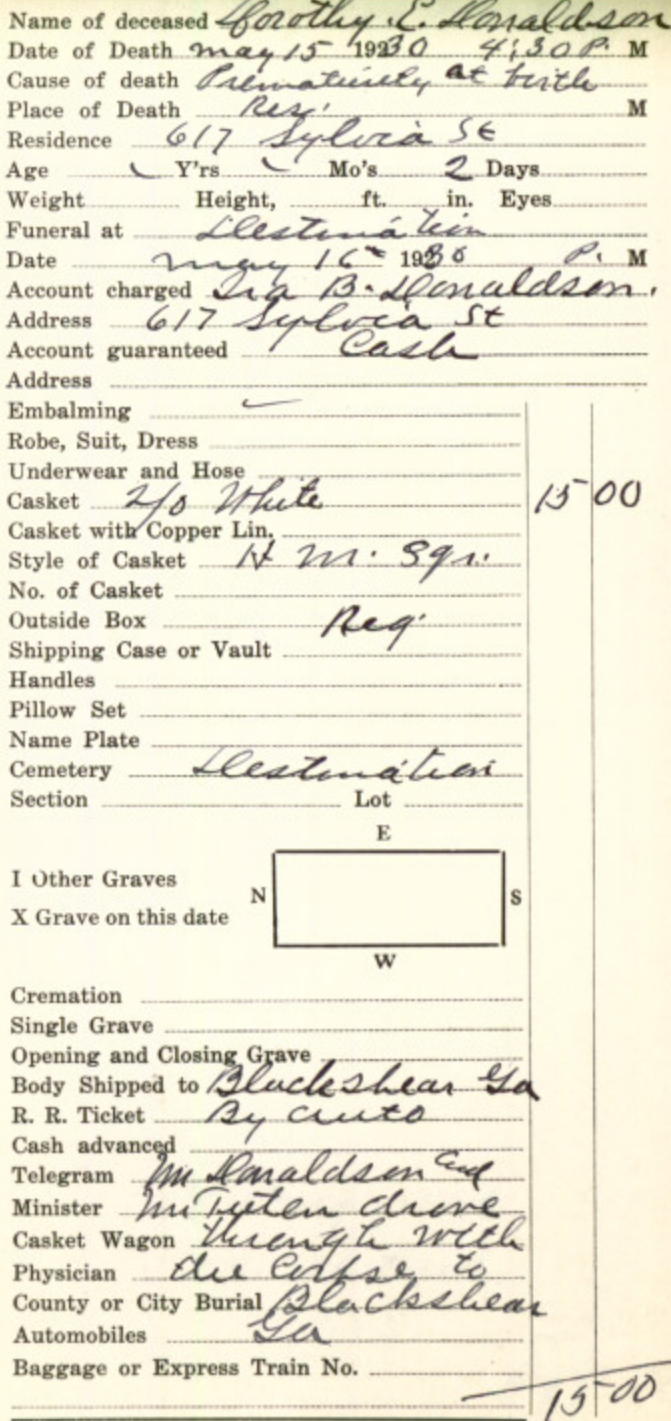 Name of deceased Dorothy E. Donaldson
Date of Death May 15 1930 4:30 P. M
Cause of death Prematurely at birth
Place of Death Res. M
Residence 617 Sylvia St
Age Y'rs Mo's 2 Days
Weight Height, ft. in. Eyes
Funeral at Destination
Date May 16th 1930 P. M
Account charged Ira B. Donaldson.
Address 617 Sylvia St
Account guaranteed Cash
Address
Embalming
Robe, Suit, Dress
Underwear and Hose
Casket 2/0 White 15 00
Casket with Copper Lin.
Style of Casket H M. Sqr.
No. of Casket
Outside Box Reg.
Shipping Case or Vault
Handles
Pillow Set
Name Plate
Cemetery Destination
Section Lot
E
I Other Graves
N S
X Grave on this date
W
Cremation
Single Grave
Opening and Closing Grave
Body Shipped to Blackshear Ga
R. R. Ticket By auto
Cash advanced
Telegram Mr Donaldson and
Minister Mr Tuten drove
Casket Wagon through with
Physician the Corpse to
County or City Burial Blackshear
Automobiles Ga
Baggage or Express Train No.
15 00